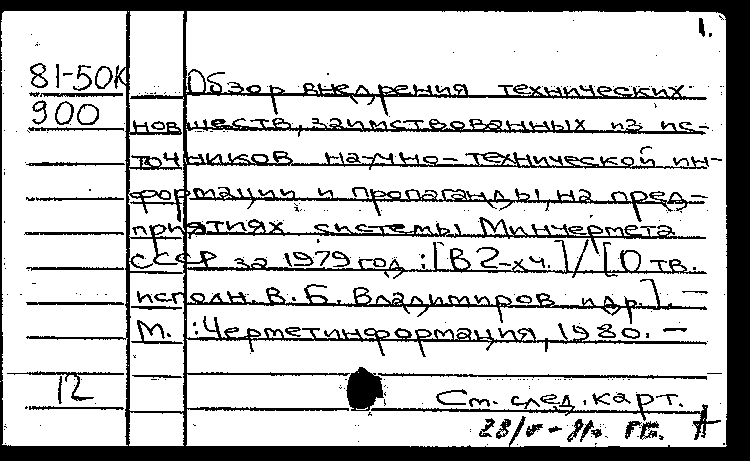 1.
81-50К Обзор внедрения технических
900 новшеств, заимствованных из ис-
точников научно-технической ин-
формации и пропаганды, на пред-
приятиях системы Минчермета
СССР за 1979 год : [В 2-х ч.] / [Отв.
исполн. В. Б. Владимиров и др.]. —
М. : Черметинформация, 1980. —
12 Ст. след. карт.
28/V - 81г. А